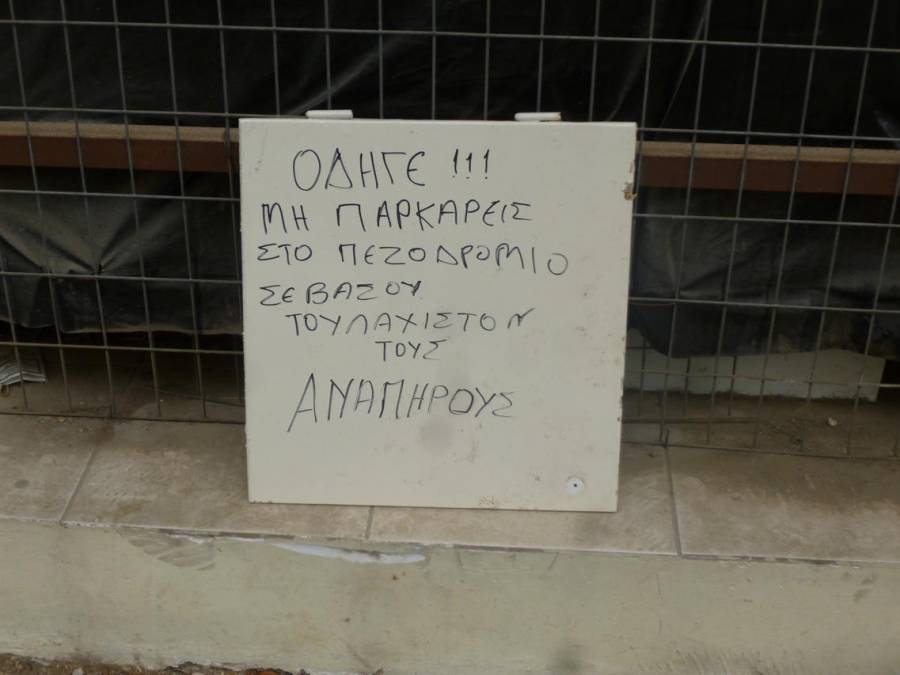 ΟΔΗΓΕ !!!
ΜΗ ΠΑΡΚΑΡΕΙΣ
ΣΤΟ ΠΕΖΟΔΡΟΜΙΟ
ΣΕΒΑΣΟΥ
ΤΟΥΛΑΧΙΣΤΟΝ
ΤΟΥΣ
ΑΝΑΠΗΡΟΥΣ